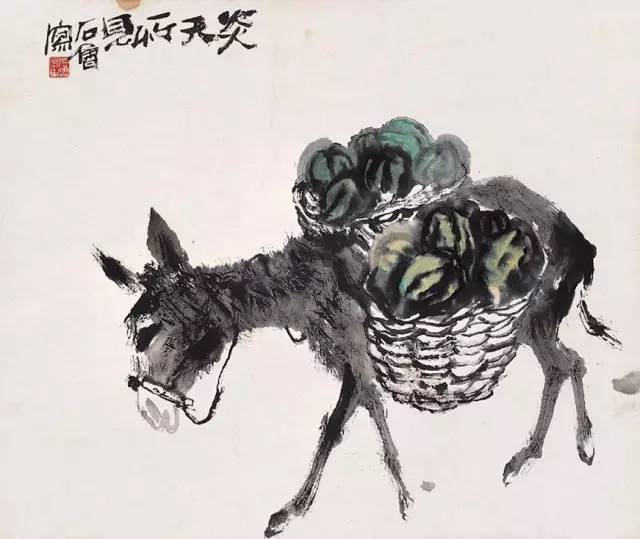 炎天所見
石魯
寫